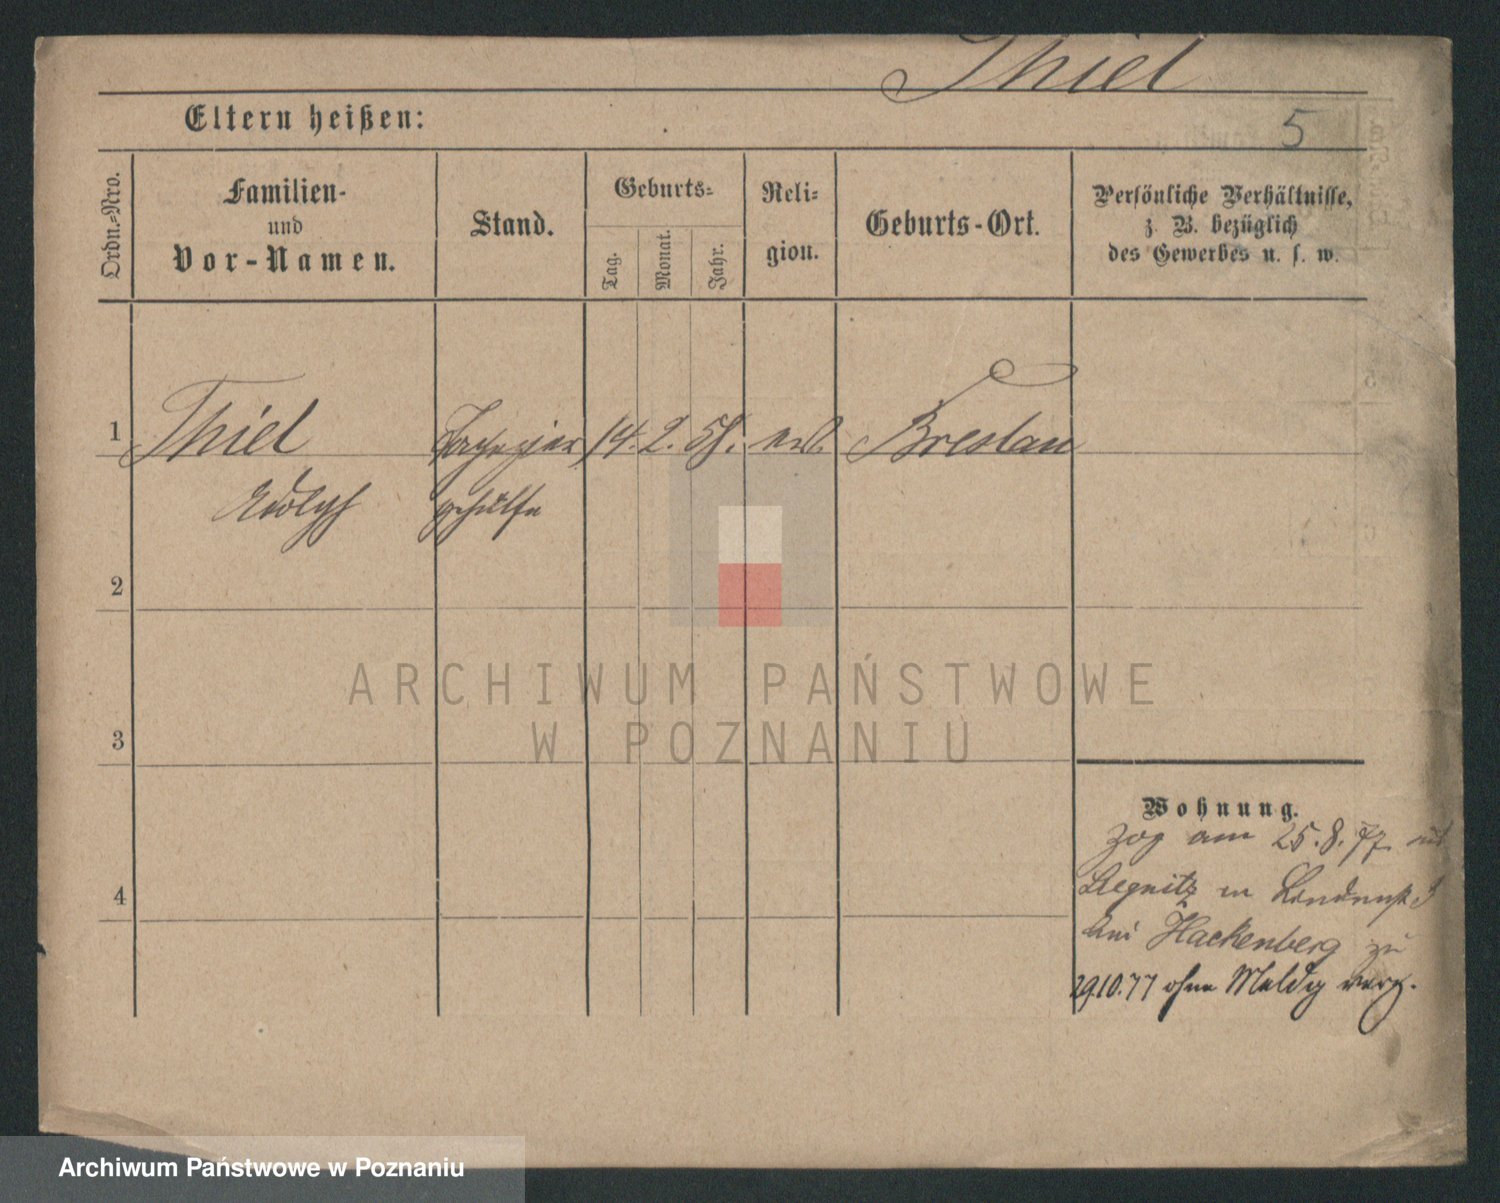 Thiel
Eltern heißen:
5
Ordn.-Nro.
Familien-
und
Vor-Namen.
Stand.
Geburts-
Tag.
Monat.
Jahr.
Reli-
gion.
Geburts-Ort.
Persönliche Verhältnisse,
z. B. bezüglich
des Gewerbes u. s. w.
1
Thiel
14. 2. 58.
Breslau
Adolph
gehülfe
2
ARCHIWUM PAŃSTWOWE
W POZNANIU
3
Wohnung.
Zog am 25.8.77
Liegnitz in
bei Hackenberg zu
4
29.10.77 ohne Meldg verz.
Archiwum Państwowe w Poznaniu